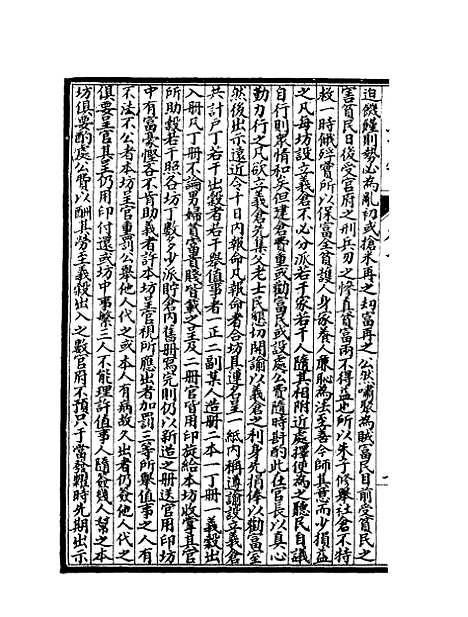 迫饑饉則勢必為亂初或搶米再之劫富再之公然嘯聚為賊富民目前受貧民之
害貧民日後受官府之刑兵刃之慘貧富兩不得益也所以朱子修舉社倉不特
救一時餓殍實所以保富全貧護人身家養人廉恥為法至善今師其意而少損益
之凡每坊設立義倉不必分派若干家若干人隨其相附近處擇便為之聽民自議
自行則衆情和矣但建倉費重或勸富室或設處公費隨時斟酌此在官長以真心
勤力行之凡欲立義倉先集父老士民懇切開諭以義倉之利身先捐俸以勸富室
然後出示遠近令十日内報命凡報命者合坊具連名呈一紙内稱遵諭設立義倉
共計户丁若干出穀者若干舉值事者一正二副某人造册二本一丁册一義穀出
入册凡丁册不論男婦貧富貴賤皆載之呈及二册官皆用印旋給本坊收掌其官
所助穀若干照各坊丁數多少派貯倉内舊册寫完則仍以新造之册送官用印坊
中有富豪慳吝不肯助義者許本坊呈官視所應出者加罰三等所舉值事之人有
不法不公者本坊呈官重罰公舉他人代之或本人有病故久出者仍僉他人代之
俱要呈官其呈仍用印付還或坊中事繁三人不能理許值事人隨僉幾人幫之本
坊俱要酌處公費以酬其勞至義穀出入之數官府不預只于當發糶時先期出示